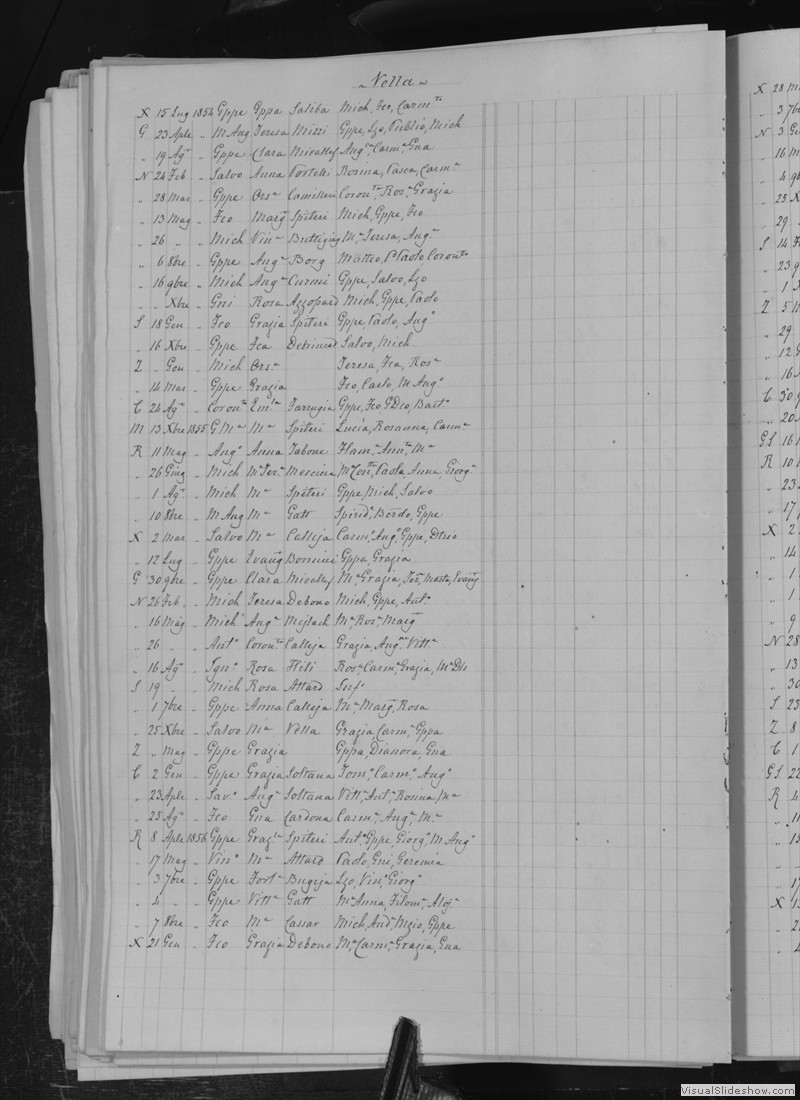 Vella
X 15 Lug 1854 Gppe Gppa Saliba Mich, Fco, Carm.ta
G 23 Aple „ M Ang Teresa Mizzi Gppe, Lzo, Publio, Mich
„ 19 Ag.o „ Gppe Clara Micallef Ang.ca, Carm.a, Gna
N 24 Feb „ Salvo Anna Portelli Rosina, Pasca, Carm.a
„ 28 Mar „ Gppe Ors.a Camilleri Coron.ta, Ros.a, Grazia
„ 13 Mag „ Fco Marg.ta Spiteri Mich, Gppe, Fco
„ 26 „ „ Mich Vin.a Buttigieg M.a Teresa, Ang.a
„ 6 8bre „ Gppe Ang.a Borg Matteo, Paolo Coron.to
„ 16 9bre „ Mich Ang.a Curmi Gppe, Salvo, Lzo
„ „ Xbre „ Gni Rosa Azzopard Mich, Gppe, Paolo
S 18 Gen „ Fco Grazia Spiteri Gppe, Paolo, Ang.o
„ 16 Xbre „ Gppe Fca Debrincat Salvo, Mich
Z „ Gen „ Mich Ors.a Teresa, Fca, Ros.a
„ 14 Mar „ Gppe Grazia Fco, Carlo, M Ang.o
C 24 Ag.o „ Coron.to Em.la Farrugia Gppe, Fco, G Dco, Bast.o
M 13 Xbre 1855 G M.a M.a Spiteri Lucia, Rosanna, Carm.a
R 11 Mag „ Ang.o Anna Tabone Flam.a, Ann.ta, M.a
„ 26 Giug „ Mich M Ter.a Mercieca M Con.ta, Paola, Anna, Giorg.a
„ 1 Ag.o „ Mich M.a Spiteri Gppe, Mich, Salvo
„ 10 8bre „ M Ang M.a Gatt Spirid.e, Bordo, Gppe
X 2 Mar „ Salvo M.a Calleja Carm.o, Ang.o, Gppe, Dtrio
„ 12 Lug „ Gppe Evang Bonnici Gppa, Grazia
G 30 9bre „ Gppe Clara Micallef M.a Grazia, Marta, Evang
N 26 Feb „ Mich Teresa Debono Mich, Gppe, Ant.o
„ 16 Mag „ Mich Ang.a Mejlach M.a Ros.a Marg.ta
„ 26 „ „ Ant.o Coron.ta Calleja Grazia, Ang.ca, Vitt.a
„ 16 Ag.o „ Ign.o Rosa Hili Ros.a, Carm.a, Grazia, M.a
S 19 „ „ Mich Rosa Attard
„ 1 7bre „ Gppe Anna Calleja M.a, Marg.ta, Rosa
„ 25 Xbre „ Salvo M.a Vella Grazia, Carm.a, Gppa
Z „ Mag „ Gppe Grazia Gppa, Dianora, Gna
C 2 Gen „ Gppe Grazia Soltana Tom.o, Carm.o, Ang.o
„ 23 Aple „ Sav.o Ang.a Soltana Vitt.a, Ant.a, Rosina, M.a
„ 25 Ag.o „ Fco Gna Cardona Carm.a, Ang.a, M.a
R 8 Aple 1856 Gppe Graz.la Spiteri Ant.o, Gppe, Giorg.o, M Ang.o
„ 17 Mag „ Vin.o M.a Attard Paolo, Gni, Geremia
„ 3 7bre „ Gppe Fort.a Bugeja Lzo, Vin.o, Giorg.o
„ 4 „ „ Gppe Vitt.a Gatt M.a Anna, Filom.a, Aloj.a
„ 7 8bre „ Fco M.a Cassar Mich, And.a, Nzio, Gppe
X 21 Gen „ Fco Grazia Debono M.a, Carm.a, Grazia, Gna
X 28 M
„ 3 7bre
N 3 Ge
„ 16 M
„ 4 9b
„ 25 X
„ 29
S 14
„ 23 9
„ 1
Z 5 M
„ 29
„ 12 G
„ 16 A
C 30
„ 20
GS 16
R 10
„ 23
„ 17
X 2
„ 14
„ 1
„ 1
„ 9
N 28
„ 13
„ 30
S 23
Z 8
C 1
GS 22
R 4
„ 11
„ 15
„ 17
X 1
„ 2
„ 4
VisualSlideshow.com